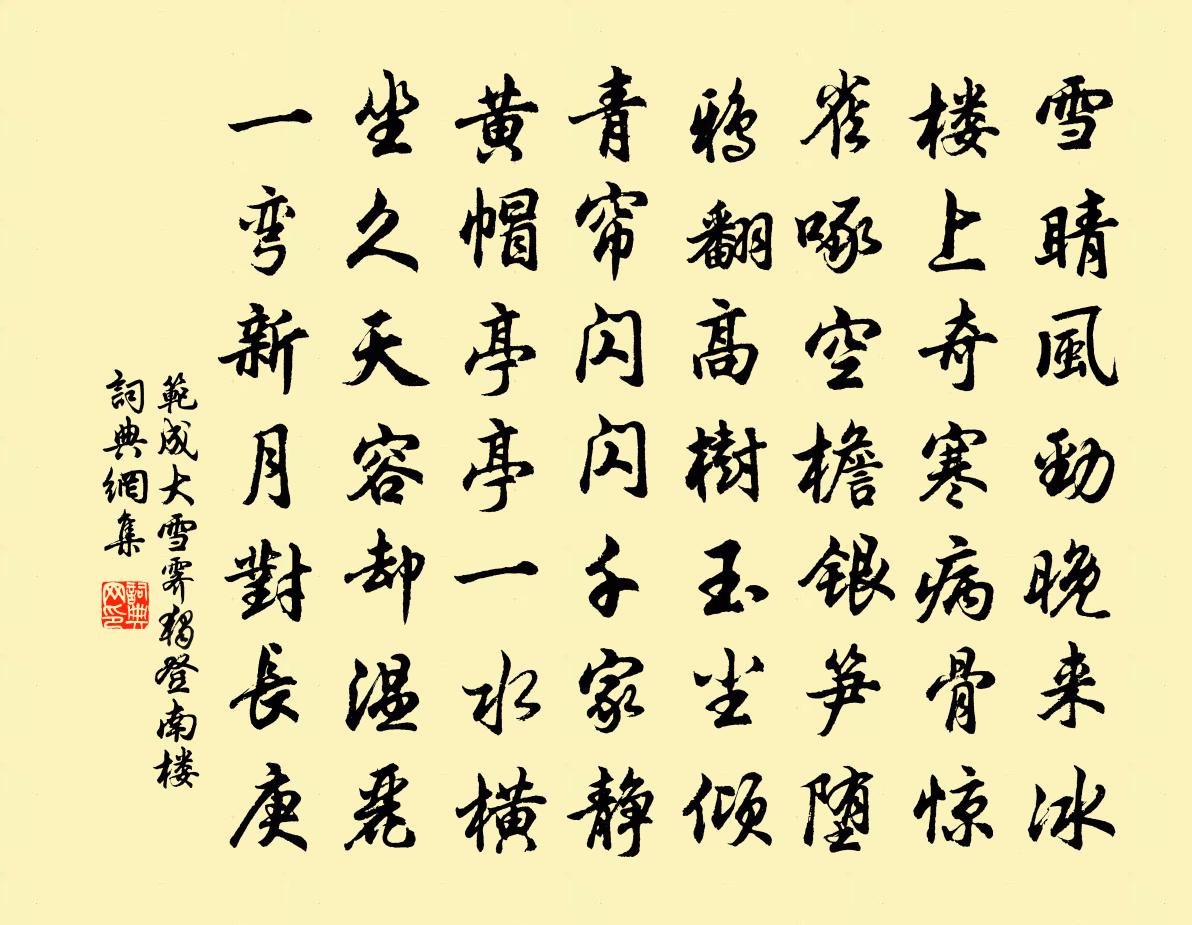 雪晴風勁晚来冰
楼上奇寒病骨惊
雀啄空檐銀笋堕
鴉翻高樹玉尘倾
青帘闪闪千家静
黄帽亭亭一水横
坐久天容却温麗
一弯新月對長庚
範成大雪霽独登南楼
詞典網集
詞典网印